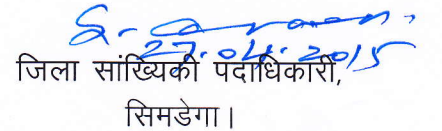 27.04.2015
जिला सांख्यिकी पदाधिकारी,
सिमडेगा।